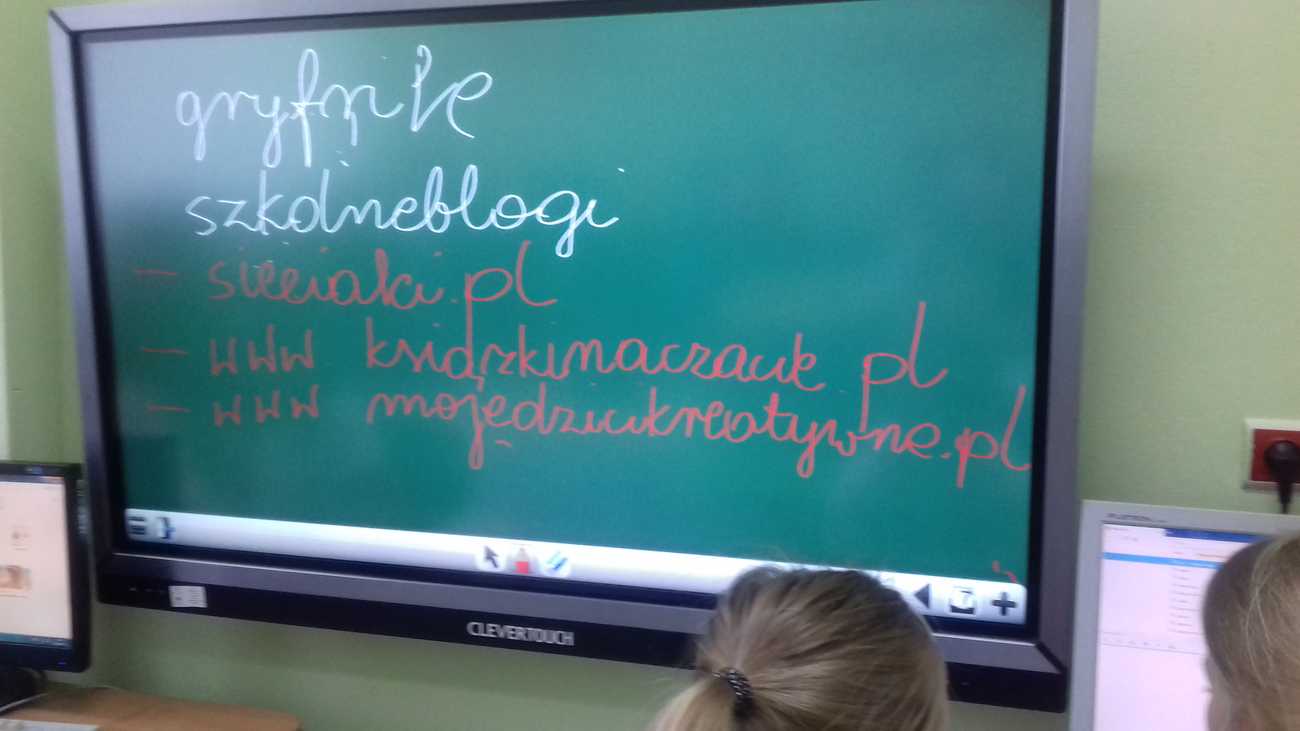 gryfziKe
szkolneblogi
– sieciaki.pl
– www ksiązkinaczacie pl
– www mojedziecikreatywne.pl
CLEVERTOUCH